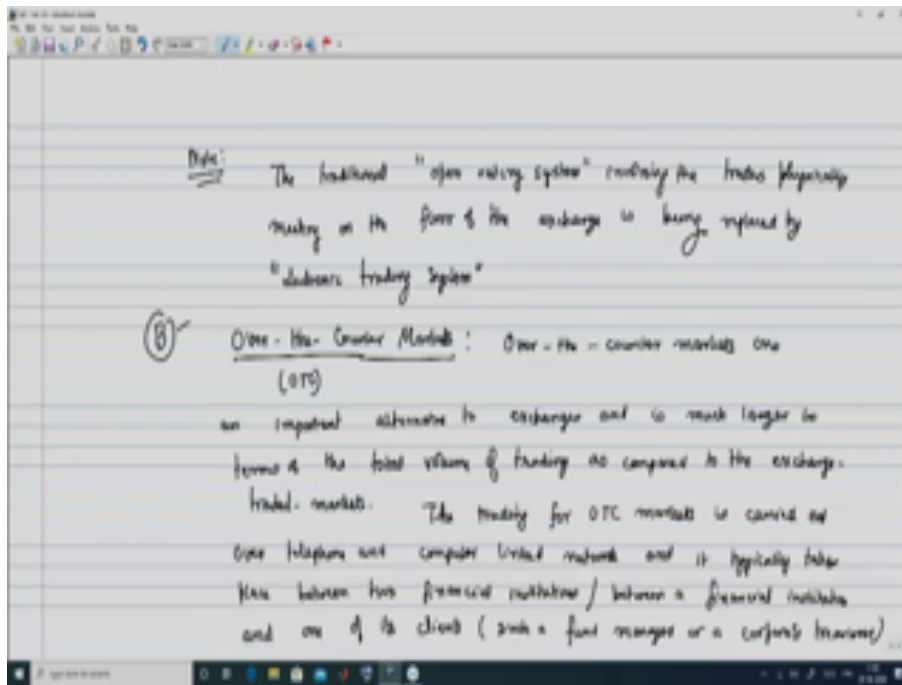 Note:
The traditional "open outcry system" involving the traders physically
meeting on the floor of the exchange is being replaced by
"electronic trading system"
(B) Over-the-Counter Markets : Over-the-counter markets are
(OTC)
an important alternative to exchanges and is much larger in
terms of the total volume of trading as compared to the exchange-
traded-markets. The trading for OTC markets is carried out
over telephone and computer linked network and it typically takes
place between two financial institutions / between a financial institution
and one of its clients (such a fund manager or a corporate treasurer)